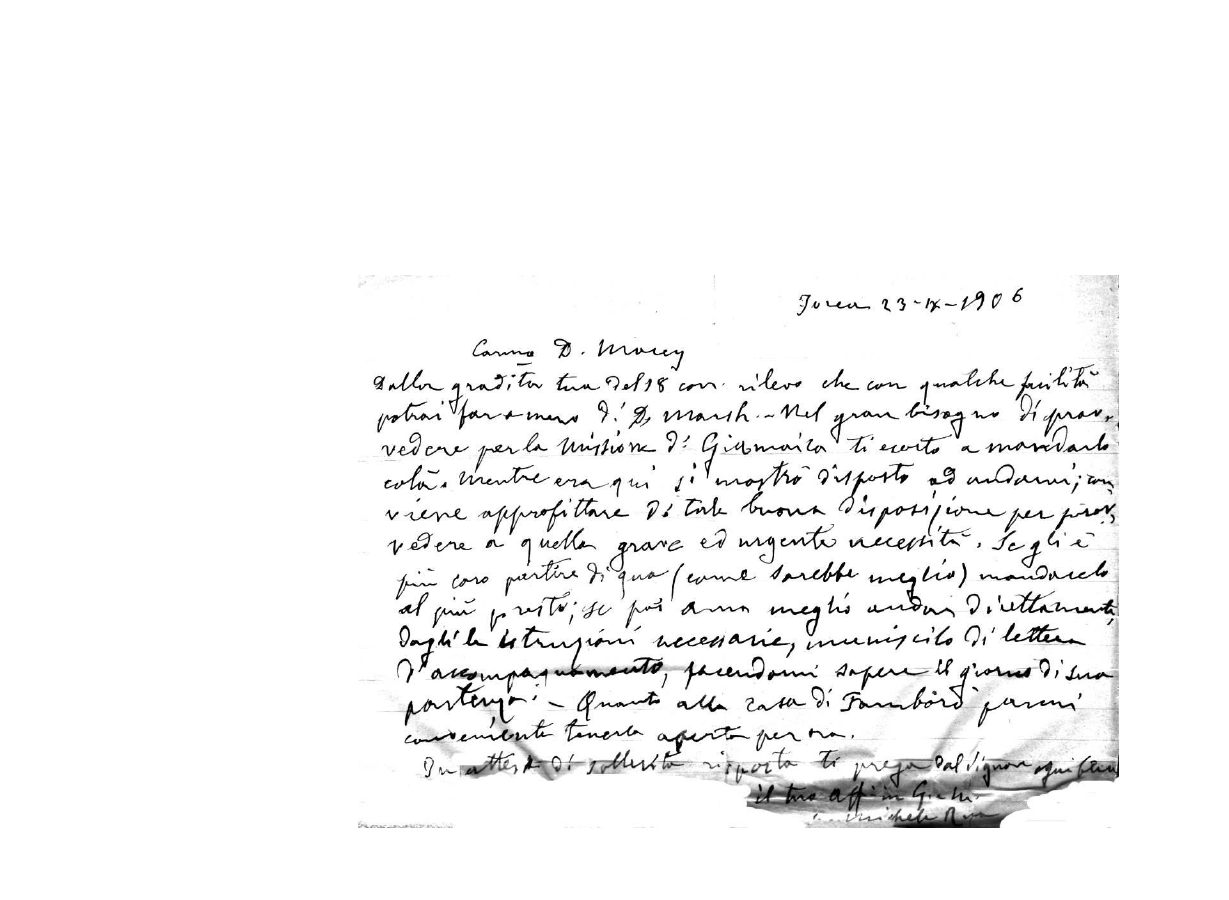 Ivrea 23-IX-1906
Carmo D. Macey
Dalla gradita tua del 18 corr. rilevo che con qualche facilità
potrai far a meno di D. Marsh. - Nel gran bisogno di prov-
vedere per la Missione di Giamaica ti esorto a mandarlo
colà. Mentre era qui si mostrò disposto ad andarvi; con
viene approfittare di tale buona disposizione per prov-
vedere a quella grave ed urgente necessità. Se gli è
più caro partire di qua (come sarebbe meglio) mandacelo
al più presto; se poi ama meglio andar direttamente,
dagli le istruzioni necessarie, muniscilo di lettera
d'accompagnamento, facendomi sapere il giorno di sua
partenza. - Quanto alla casa di Farnboro' parmi
conveniente tenerla aperta per ora.
In attesa di sollecita risposta ti prega dal Signor ogni bene
il tuo aff. in G.
Michele Rua